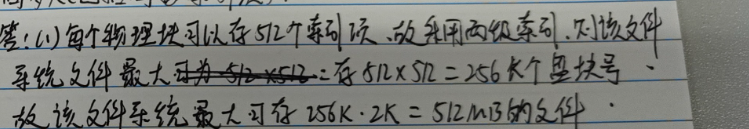 答:(1)每个物理块可以存512个索引项、故采用两级索引,则该文件
系统文件最大可为 512×512:存512×512=256K个盘块号、
故该文件系统最大可存256K·2K=512MB的文件.